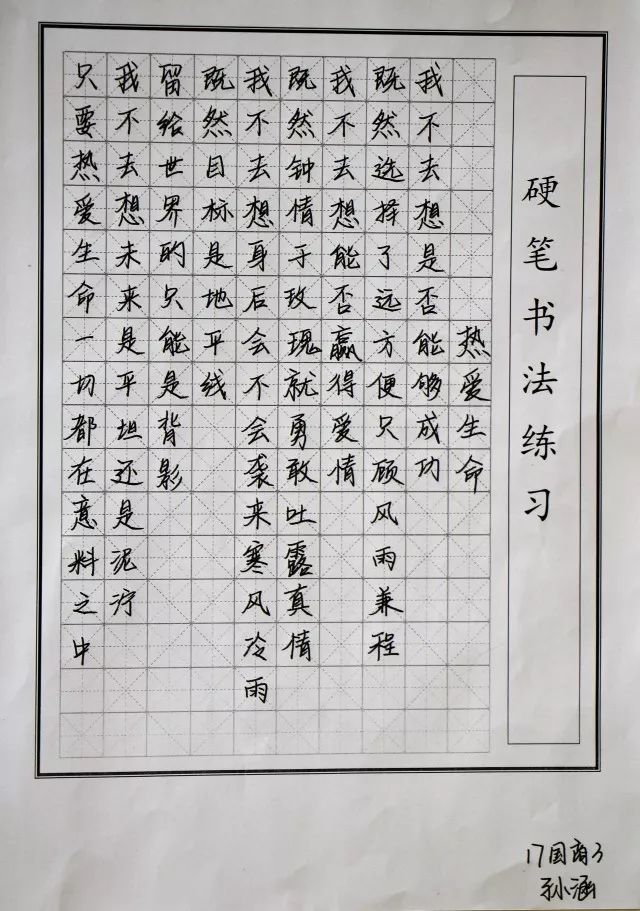 硬笔书法练习
热爱生命
我不去想是否能够成功
既然选择了远方便只顾风雨兼程
我不去想能否赢得爱情
既然钟情于玫瑰就勇敢吐露真情
我不去想身后会不会袭来寒风冷雨
既然目标是地平线
留给世界的只能是背影
我不去想未来是平坦还是泥泞
只要热爱生命一切都在意料之中
17国商3
孙涵